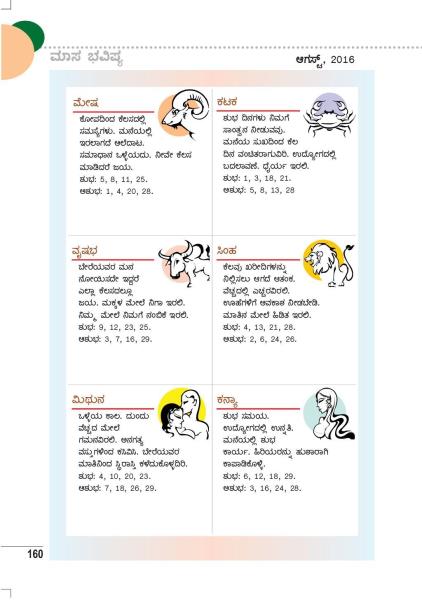 ಮಾಸ ಭವಿಷ್ಯ
ಆಗಸ್ಟ್, 2016
ಮೇಷ
ಕೋಪದಿಂದ ಕೆಲಸದಲ್ಲಿ
ಸಮಸ್ಯೆಗಳು. ಮನೆಯಲ್ಲಿ
ಇರಲಾಗದೆ ಅಲೆದಾಟ.
ಸಮಾಧಾನ ಒಳ್ಳೆಯದು. ನೀವೇ ಕೆಲಸ
ಮಾಡಿದರೆ ಜಯ.
ಶುಭ: 5, 8, 11, 25.
ಅಶುಭ: 1, 4, 20, 28.
ಕಟಕ
ಶುಭ ದಿನಗಳು ನಿಮಗೆ
ಸಾಂತ್ವನ ನೀಡುವವು.
ಮನೆಯ ಸುಖದಿಂದ ಕೆಲ
ದಿನ ವಂಚಿತರಾಗುವಿರಿ. ಉದ್ಯೋಗದಲ್ಲಿ
ಬದಲಾವಣೆ. ಧೈರ್ಯ ಇರಲಿ.
ಶುಭ: 1, 3, 18, 21.
ಅಶುಭ: 5, 8, 13, 28
ವೃಷಭ
ಬೇರೆಯವರ ಮನ
ನೋಯಿಸದೇ ಇದ್ದರೆ
ಎಲ್ಲಾ ಕೆಲಸದಲ್ಲೂ
ಜಯ. ಮಕ್ಕಳ ಮೇಲೆ ನಿಗಾ ಇರಲಿ.
ನಿಮ್ಮ ಮೇಲೆ ನಿಮಗೆ ನಂಬಿಕೆ ಇರಲಿ.
ಶುಭ: 9, 12, 23, 25.
ಅಶುಭ: 3, 7, 16, 29.
ಸಿಂಹ
ಕೆಲವು ಖರೀದಿಗಳನ್ನು
ನಿಲ್ಲಿಸಲು ಆಗದೆ ಆತಂಕ.
ವೆಚ್ಚದಲ್ಲಿ ಎಚ್ಚರವಿರಲಿ.
ಊಹೆಗಳಿಗೆ ಅವಕಾಶ ನೀಡಬೇಡಿ.
ಮಾತಿನ ಮೇಲೆ ಹಿಡಿತ ಇರಲಿ.
ಶುಭ: 4, 13, 21, 28.
ಅಶುಭ: 2, 6, 24, 26.
ಮಿಥುನ
ಒಳ್ಳೆಯ ಕಾಲ. ದುಂದು
ವೆಚ್ಚದ ಮೇಲೆ
ಗಮನವಿರಲಿ. ಅನಗತ್ಯ
ವಸ್ತುಗಳಿಂದ ಕಸಿವಿಸಿ. ಬೇರೆಯವರ
ಮಾತಿನಿಂದ ಸ್ಥಿರಾಸ್ತಿ ಕಳೆದುಕೊಳ್ಳದಿರಿ.
ಶುಭ: 4, 10, 20, 23.
ಅಶುಭ: 7, 18, 26, 29.
ಕನ್ಯಾ
ಶುಭ ಸಮಯ.
ಉದ್ಯೋಗದಲ್ಲಿ ಉನ್ನತಿ.
ಮನೆಯಲ್ಲಿ ಶುಭ
ಕಾರ್ಯ. ಹಿರಿಯರನ್ನು ಹುಶಾರಾಗಿ
ಕಾಪಾಡಿಕೊಳ್ಳಿ.
ಶುಭ: 6, 12, 18, 29.
ಅಶುಭ: 3, 16, 24, 28.
160